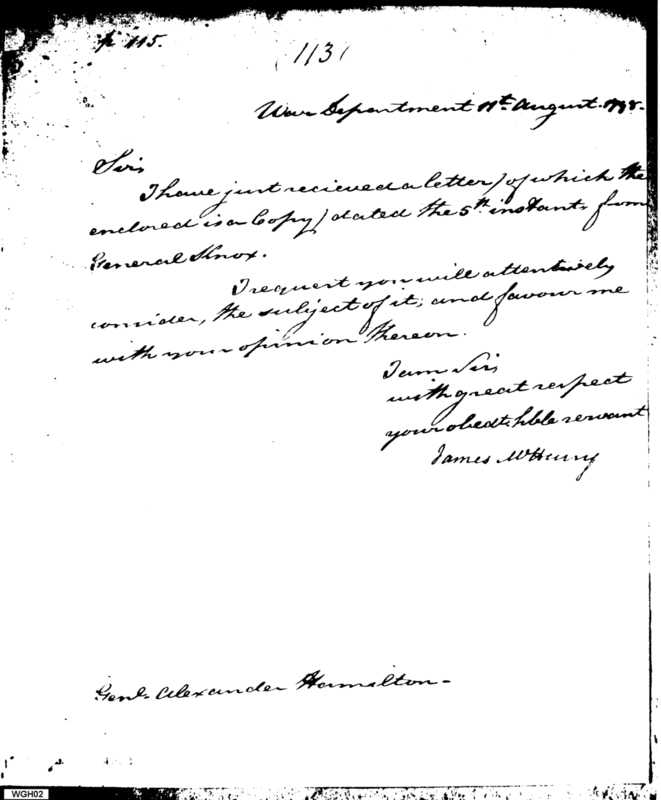 p 115.
(113)
War Department 11th August. 1798.
Sir
I have just recieved a letter) of which the
enclosed is a Copy) dated the 5th instant from
General Knox.
I request you will attentively
consider, the subject of it, and favour me
with your opinion thereon.
I am Sir
with great respect
your obedt. hble servant
James McHenry
Genl. Alexander Hamilton -
WGH02